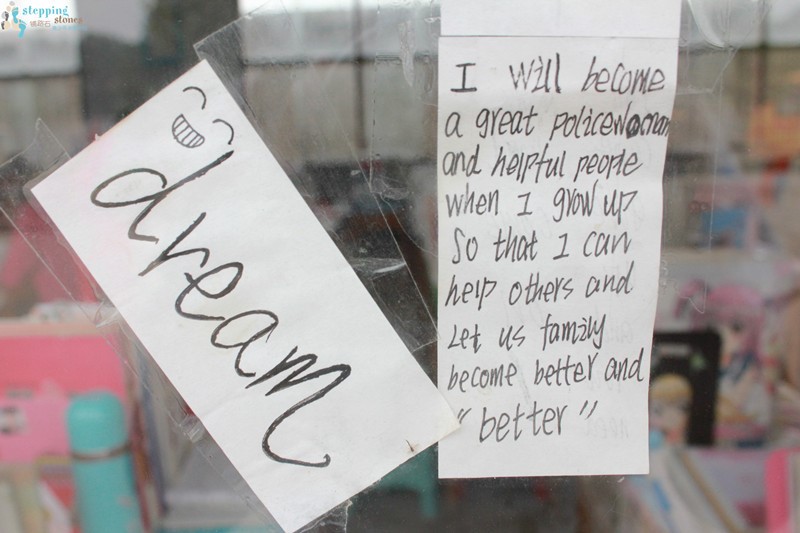 stepping
stones
dream
I will become
a great policewoman
and helpful people
when I grow up
So that I can
help others and
Let us family
become better and
"better"